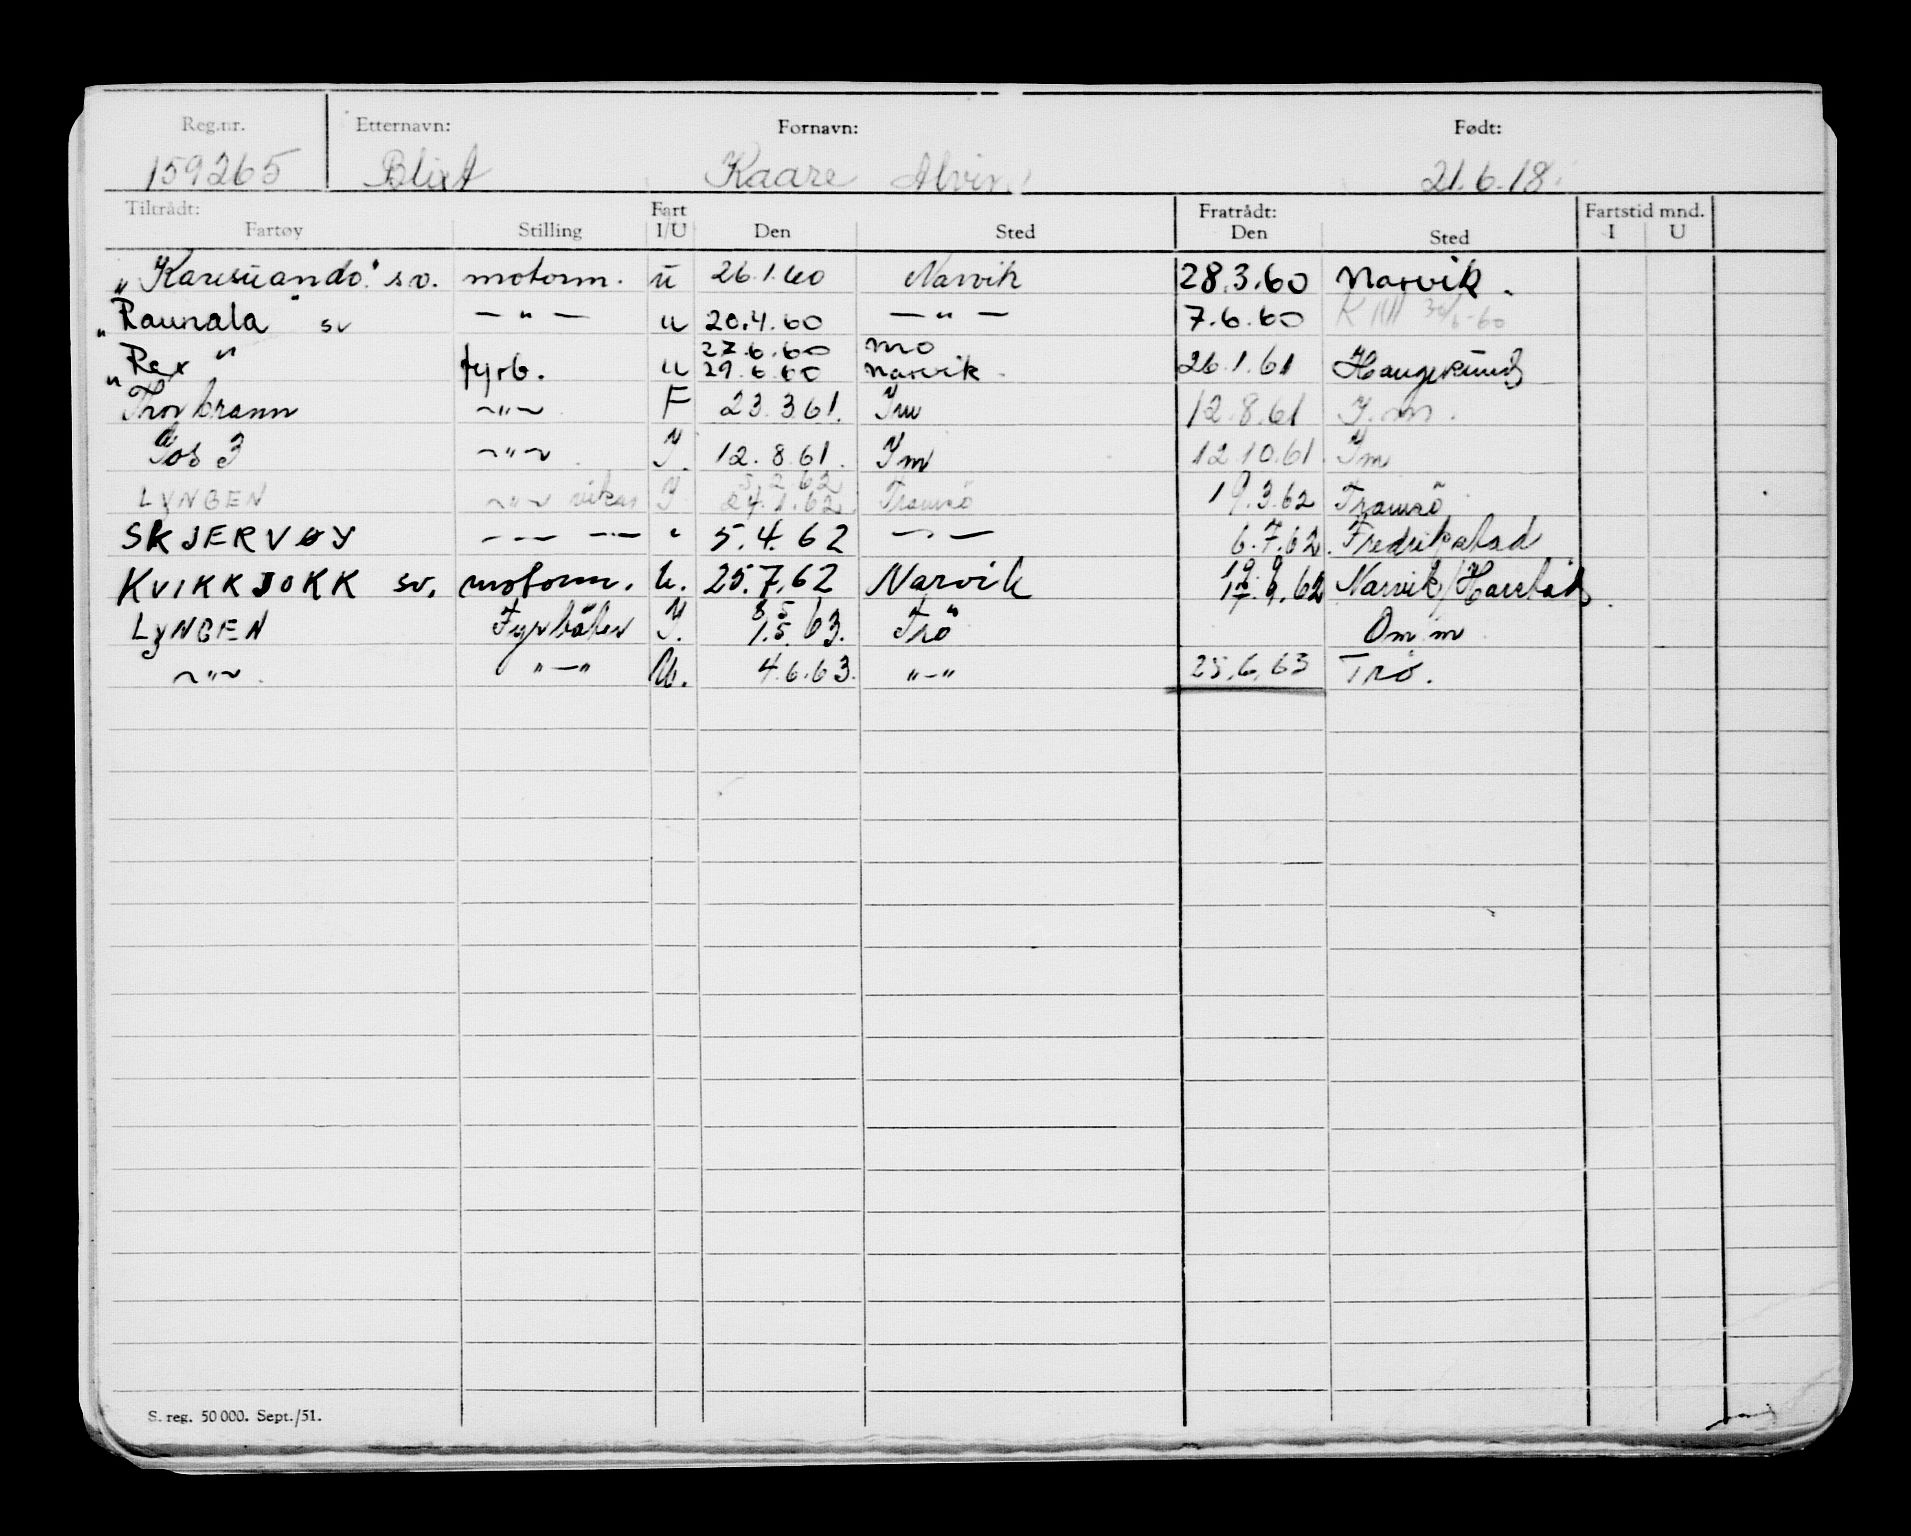 Reg.nr. Etternavn: Fornavn: Født:
159265 Blixt Kaare Alvin 21.6.18.
Tiltrådt: Fart Fratrådt: Fartstid mnd.
Fartøy Stilling I/U Den Sted Den Sted I U
„Karesuando" sv. motorm. u 26.1.60 Narvik 28.3.60 Narvik.
„Raunala" sv — " — u 20.4.60 — " — 7.6.60 30/6-60
27.6.60 mo
„Rex" fyrb. u 29.6.60 narvik. 26.1.61 Haugesund
Tronbrann ~"~ F 23.3.61. Im 12.8.61 I.m.
Gos 3 ~"~ I. 12.8.61. Im 12.10.61. Im
5.2.62
LYNGEN ~"~ vikar I 24.1.62. Tromsö 19.3.62 Tromsö
SKJERVØY — — — — " 5.4.62 — " — 6.7.62. Fredrikstad
19.9
KVIKKJOKK sv. motorm. U. 25.7.62 Narvik 17.9.62 Narvik/Harstad
8 5
LYNGEN Fyrböter I. 1.5.63. Trö Om.m
~"~. "—" U. 4.6.63. "—" 25.6.63 Trö.
S. reg. 50 000. Sept./51.